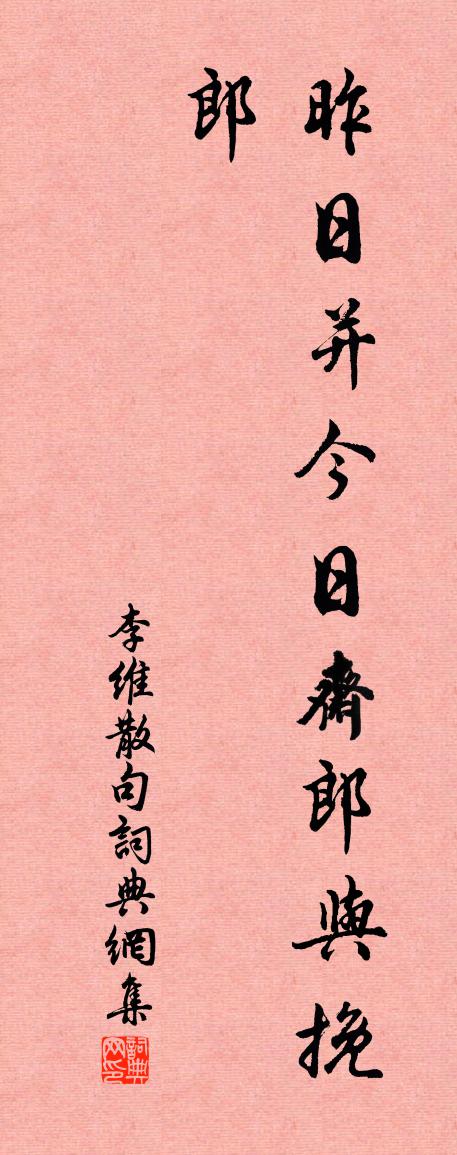 昨日并今日齋郎與挽
郎
李維散句詞典網集
詞典
网印